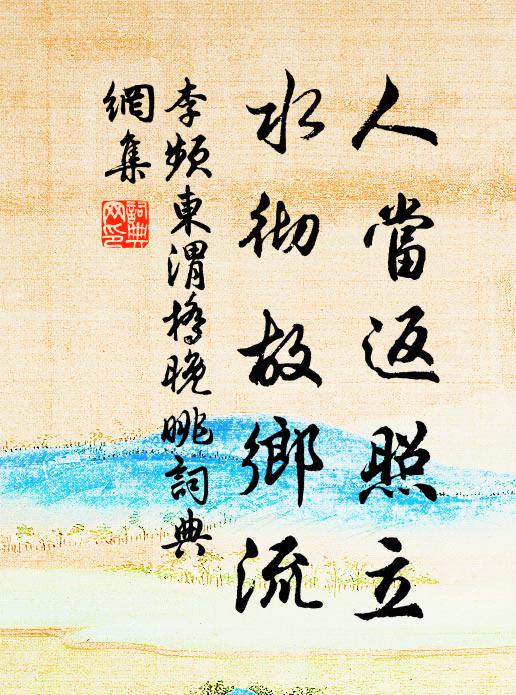 人當返照立
水彻故鄉流
李频東渭橋晚眺詞典
網集
詞典
网印